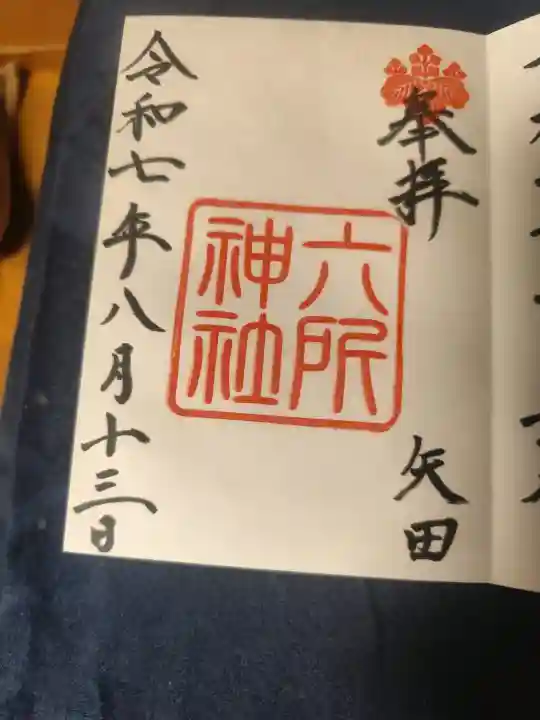 奉拝
矢田
六所
神社
令和七年八月十三日